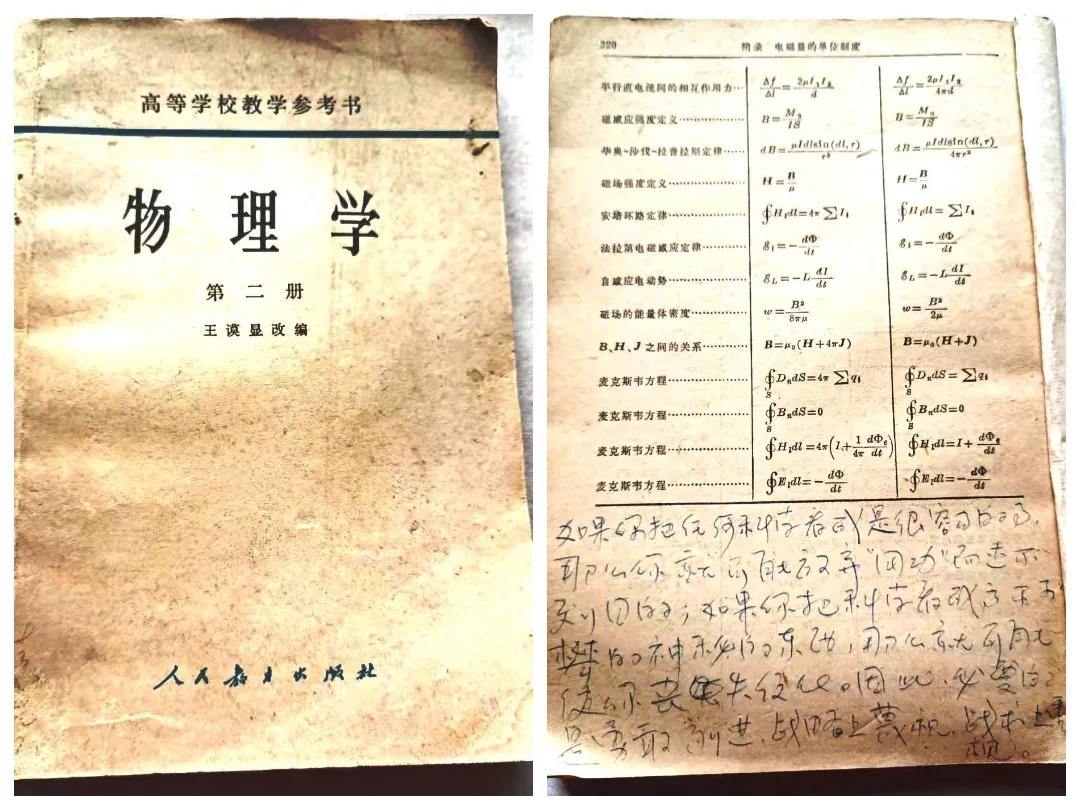 高等学校教学参考书
物理学
第二册
王谟显改编
人民教育出版社
220 附录 电磁量的单位制度
平行直电流间的相互作用力… Δf/Δl=2μI₁I₂/d Δf/Δl=2μI₁I₂/4πd
磁感应强度定义… B=M₀/IS B=M₀/IS
毕奥-沙伐-拉普拉斯定律… dB=μIdlsin(dl,r)/r² dB=μIdlsin(dl,r)/4πr²
磁场强度定义… H=B/μ H=B/μ
安培环路定律… ∮Hₗdl=4π∑Iᵢ ∮Hₗdl=∑Iᵢ
法拉第电磁感应定律… ℰᵢ=-dΦ/dt ℰᵢ=-dΦ/dt
自感应电动势… ℰ_L=-L dI/dt ℰ_L=-L dI/dt
磁场的能量体密度… w=B²/8πμ w=B²/2μ
B、H、J之间的关系… B=μ₀(H+4πJ) B=μ₀(H+J)
麦克斯韦方程… ∮_S DₙdS=4π∑qᵢ ∮_S DₙdS=∑qᵢ
麦克斯韦方程… ∮_S BₙdS=0 ∮_S BₙdS=0
麦克斯韦方程… ∮Hₗdl=4π(I+1/4π dΦₑ/dt) ∮Hₗdl=I+dΦₑ/dt
麦克斯韦方程… ∮Eₗdl=-dΦ/dt ∮Eₗdl=-dΦ/dt
如果你把任何科学看成是很容易的事,
那么你就可能放弃"用功"而达不
到目的;如果你把科学看成高不可
攀的神秘的东西,那么就可能
使你丧失信心。因此,必要的
是勇敢前进、战略上藐视,战术上重
视。